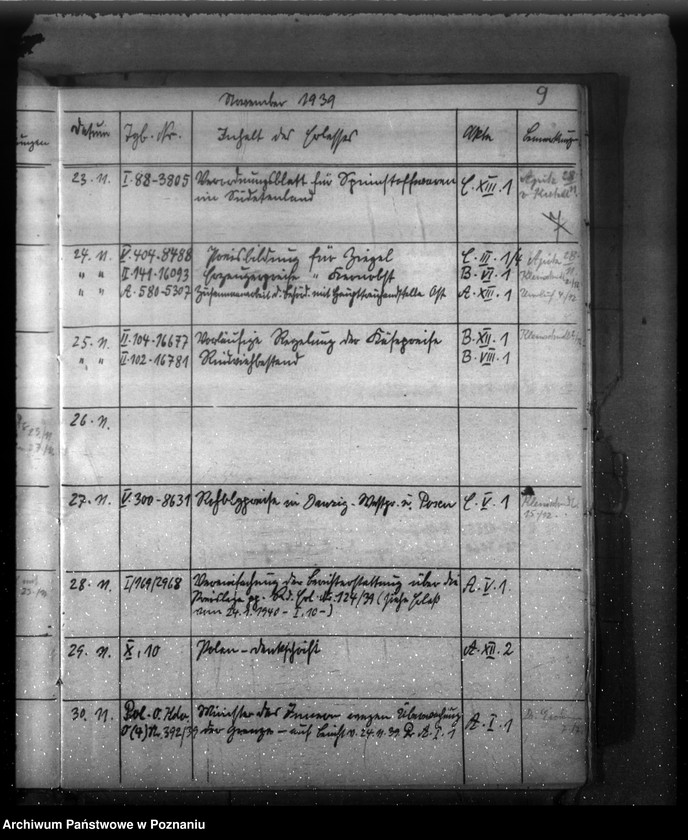 November 1939
9
Datum Tgb.-Nr. Inhalt des Erlasses Akte Bemerkung
23. n. I.88-3805 Verordnungsblatt für Spinnstoffwaren C. XIII. 1
im Sudetenland
24. n. V.404-8488 Preisbildung für Ziegel C. III. 1/4
" " II.141-16093 Erzeugerpreise " Kernobst B. VI. 1
" " A. 580-5307 Zusammenarbeit d. Behörd. mit Haupttreuhandstelle Ost A. XII. 1 Umlauf 4/12
25. n. II.104-16677 Vorläufige Regelung der Käsepreise B. XII. 1
" " II.102-16781 Rindviehbestand B. VIII. 1
26. n.
27. n. V.300-8631 Rohholzpreise in Danzig-Westpr. u. Posen C. V. 1
15/12.
28. n. I/169/2968 Vereinfachung der Berichterstattung über die A. V. 1.
Preislage pp. Rd. Erl. Nr. 124/39 (siehe Erlaß
vom 24.1.1940 - I, 10-)
29. n. X, 10 Polen-Denkschrift A. XII. 2
30. n. Pol. O. Kdo. Minister des Innern wegen Überwachung A. I. 1
O(4)Nr. 392/39 der Grenze - auf Bericht v. 24.11.39 P. A. I. 1
Archiwum Państwowe w Poznaniu